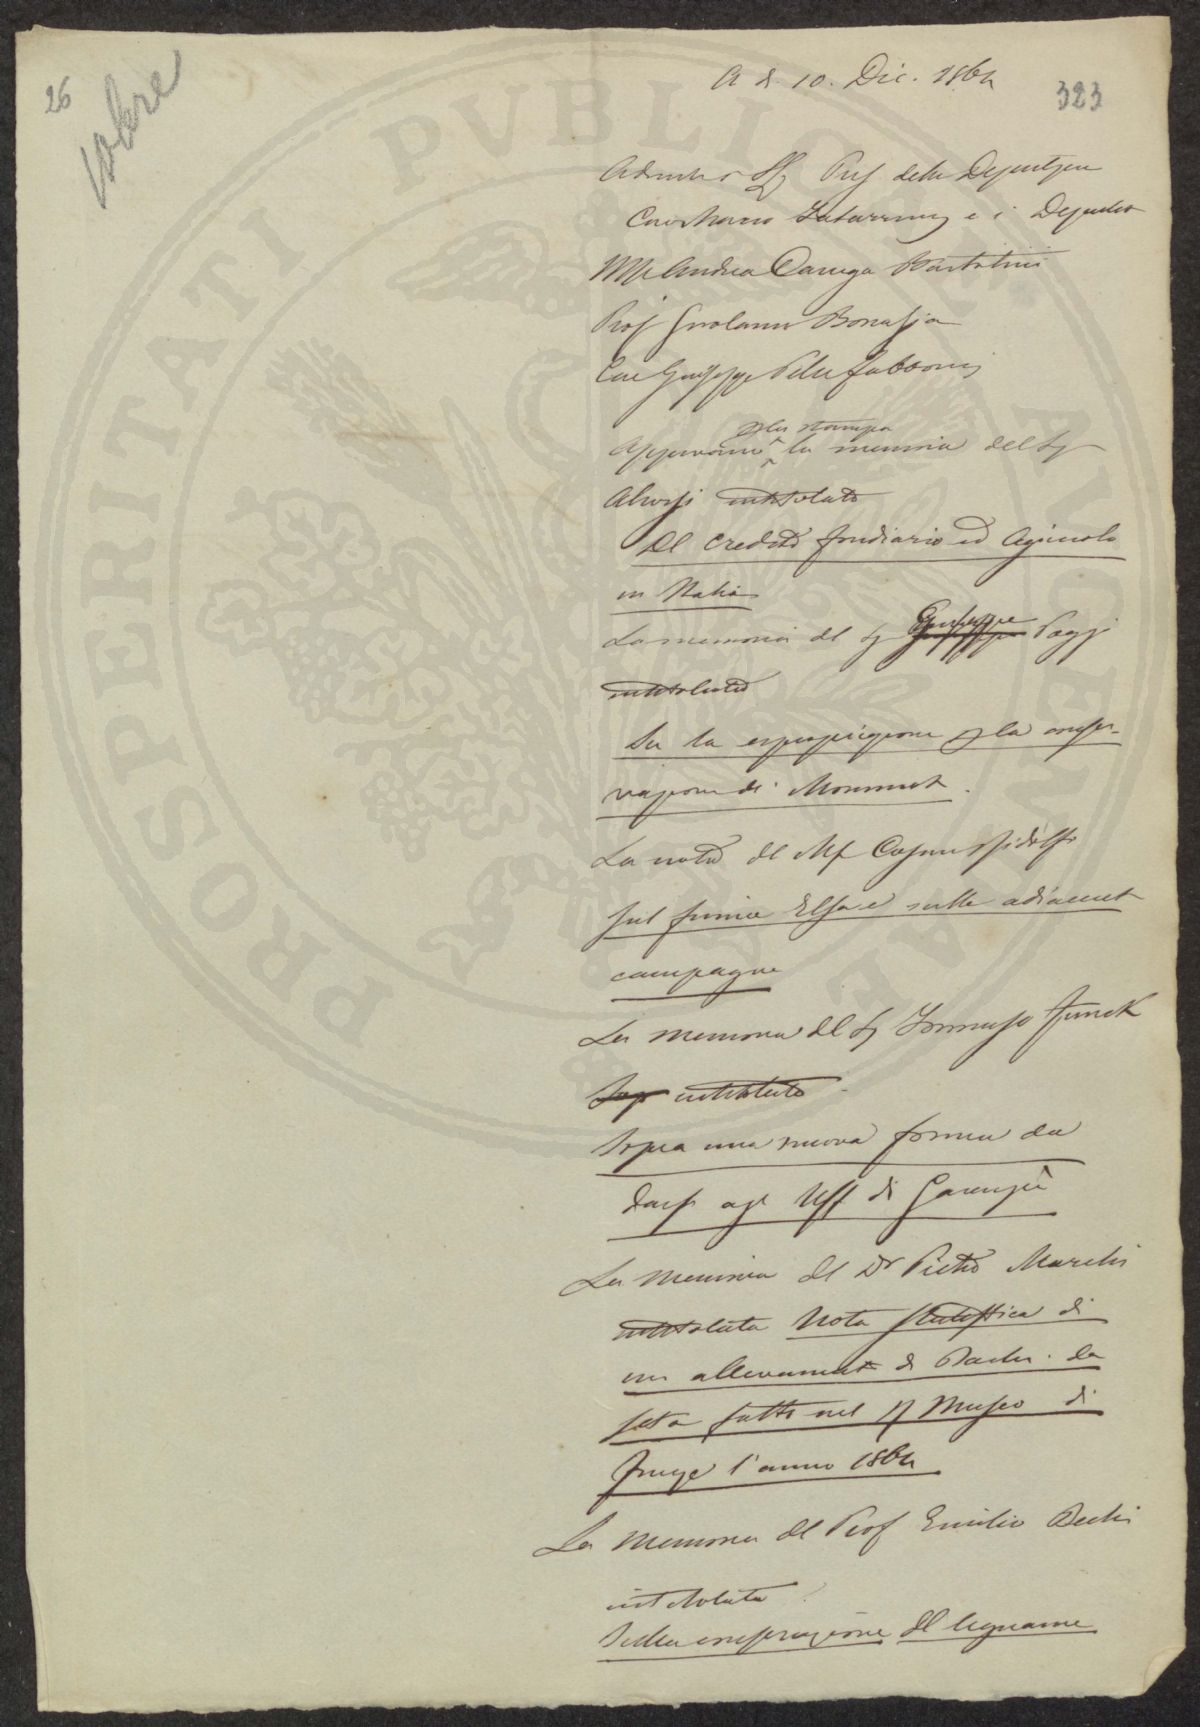 26
323
A dì 10. Dic. 1864
Adunati i Sigg Pres della Deputazione
Cav Marco Tabarrini e i Deputati
M Andrea Carega Bartolini
Prof Girolamo Bonafia
Cav Giuseppe Pelli Fabbroni
per la stampa
Approvano la memoria del Sig
Alvisi intitolata
Del credito fondiario ed Agricola
in Italia
La memoria del Sig Giuseppe Poggi
intitolata
Su la espropriazione p la conser-
vazione di Monumenti.
La nota del M Cosimo Ridolfi
sul fiume Elsa e sulle adiacenti
campagne
La memoria del Sig Tommaso Funck
Sop intitolata
Sopra una nuova forma da
darsi agl Uff di Garanzia
La memoria del Dr Pietro Marchi
intitolata Nota statistica di
un allevamento di Bachi da
seta fatto nel R Museo di
Firenze l'anno 1864
La memoria del Prof Emilio Bechi
intitolata
Sulla conservazione del legname